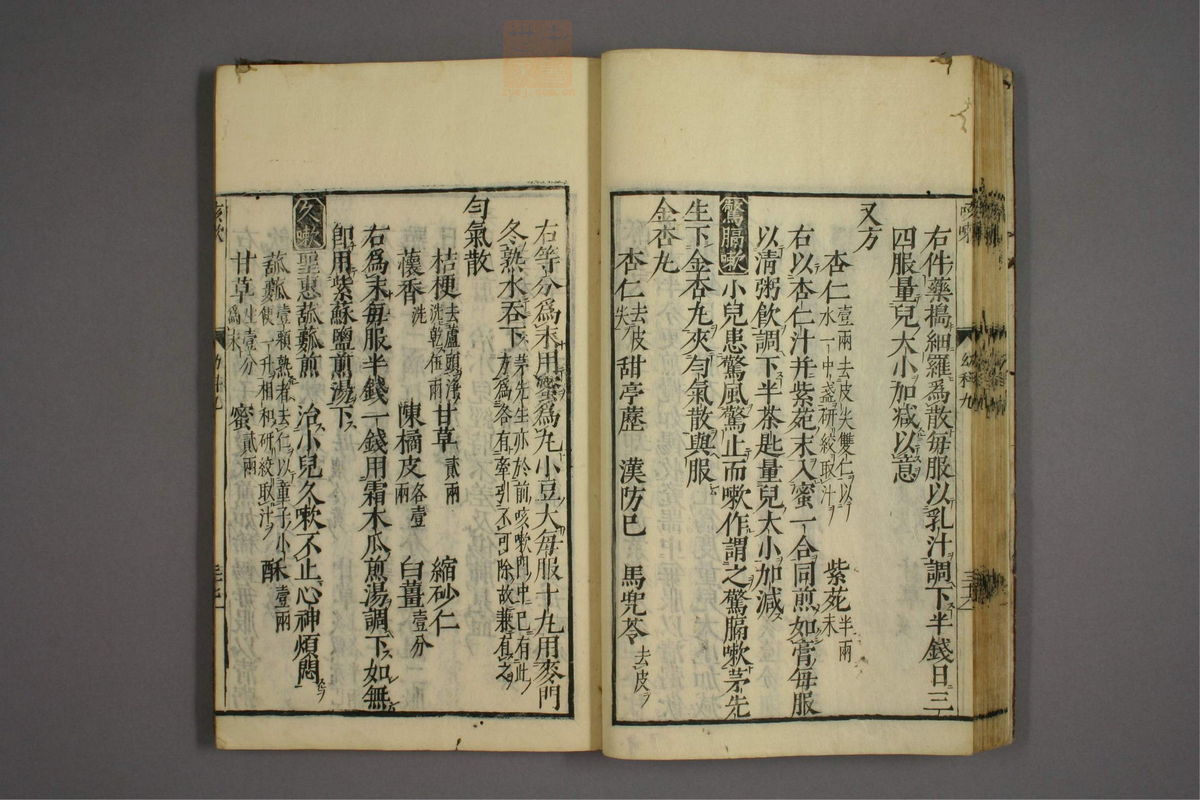 右件藥搗細羅爲散每服以乳汁調下半錢日三
四服量兒大小加減以意
又方
杏仁壹兩去皮尖雙仁以水一中盞研絞取汁 紫苑半兩末
右以杏仁汁并紫苑末入蜜一合同煎如膏每服
以清粥飲調下半茶匙量兒大小加減
驚膈嗽 小兒患驚風驚止而嗽作謂之驚膈嗽茅先
生下金杏丸夾勻氣散與服
金杏丸
杏仁去皮尖 甜葶藶 漢防已 馬兜苓去皮
右等分爲末用蜜爲丸小豆大每服十丸用麥門
冬熟水吞下茅先生亦於前咳嗽門中已有此方爲各有牽引不可除故兼有之
勻氣散
桔梗去蘆頭淨洗乾伍兩 甘草貳兩 縮砂仁
蘹香洗 陳橘皮各壹兩 白薑壹分
右爲末每服半錢一錢用霜木瓜煎湯調下如無
卽用紫蘇鹽煎湯下
久嗽 聖惠𤬛蔞煎 治小兒久嗽不止心神煩悶
𤬛蔞壹顆熟者去仁以童子小便一升相和研絞取汁 酥壹兩
甘草壹分生爲末 蜜貳兩